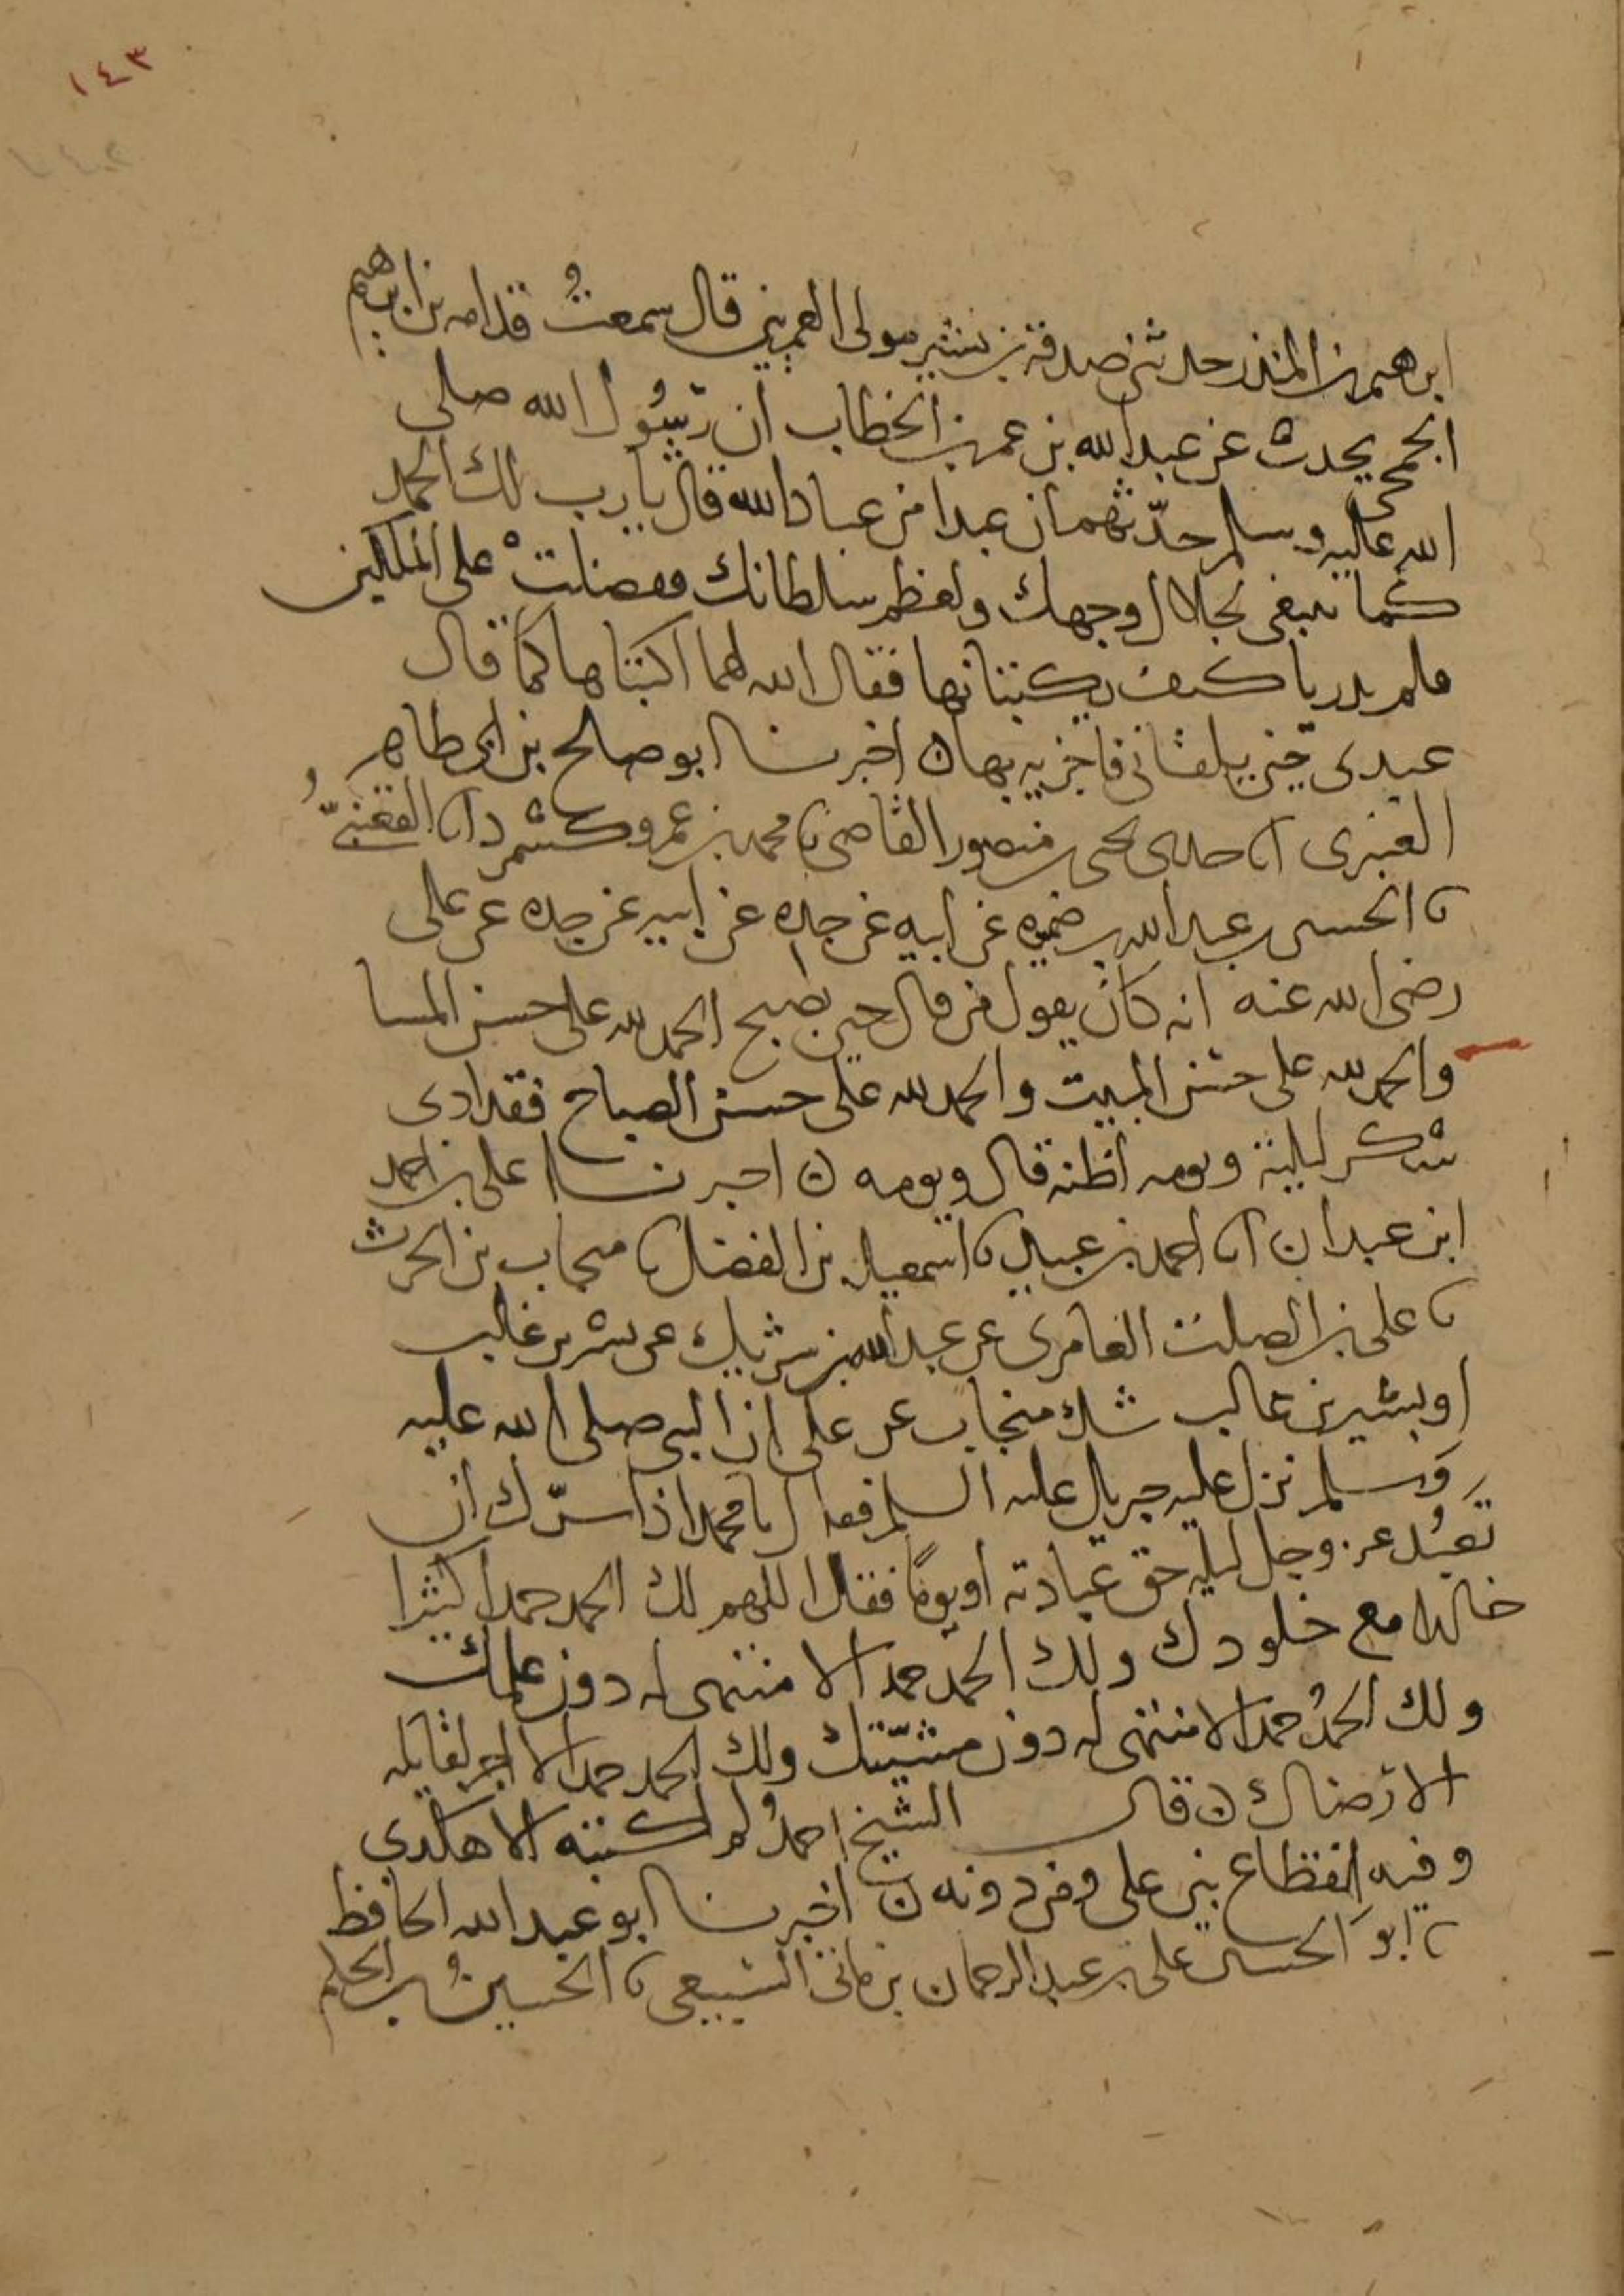 ١٤٣
ابرهيم بن المنذر حدثني صدقة بن بشير مولى العمريين قال سمعتُ قدامه بن ابرهيم
الجمحي يحدث عن عبد الله بن عمر بن الخطاب ان رسُول الله صلى
الله عليه وسلم حدّثهم ان عبدا من عباد الله قال يا رب لك الحمد
كما ينبغي لجلال وجهك ولعظم سلطانك فعضلتْ على الملكين
فلم يدريا كيف يكتبانها فقال الله لهما اكتباها كما قال
عبدي حتى يلقاني فاجزيه بها ن اخبرنا ابو صالح بن ابي طاهر
العنبري انا جدي يحيى بن منصور القاضي نا محمد بن عمرو كشمرد انا القعنبيُّ
نا الحسين بن عبد الله بن ضميره عن ابيه عن جده عن ابيه عن جده عن علي
رضي الله عنه انه كان يقول من قال حين يصبح الحمد لله على حسن المسا
والحمد لله على حسن المبيت والحمد لله على حسن الصباح فقد ادى
شكر ليلته ويومه اظنه قال ويومه ن اخبرنا علي بن احمد
ابن عبدان انا احمد بن عبيد نا اسمعيل بن الفضل نا منجاب بن الحرث
نا علي بن الصلت العامري عن عبد الله بن شريك عن بشر بن غالب
او بشير بن غالب شك منجاب عن علي ان النبي صلى الله عليه
وسلم نزل عليه جبريل عليه السلم فقال يا محمد اذا سرّك ان
تعبُد عز وجل ليله حق عبادته او يومًا فقل اللهم لك الحمد حمدا كثيرا
خالدا مع خلودك ولك الحمد حمدا لا منتهى له دون علمك
ولك الحمدُ حمدا لا منتهى له دون مشيّتك ولك الحمد حمدا لا اجر لقايله
الا رضاك ن قال الشيخ احمدُ لم اكتبه الا هكذى
وفيه انقطاع بين علي ومن دونه ن اخبرنا ابو عبد الله الحافظ
نا ابو الحسين علي بن عبد الرحمان بن ماتى السبيعي نا الحسينُ بن الحكم